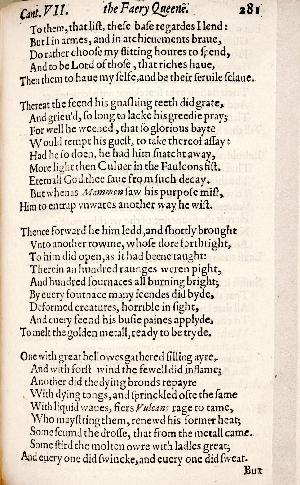 Cant. VII. the Faery Queene. 281
To them, that list, these base regardes I lend:
But I in armes, and in atchieuements braue,
Do rather choose my flitting houres to spend,
And to be Lord of those, that riches haue,
Then them to haue my selfe, and be their seruile sclaue.
Thereat the feend his gnashing teeth did grate,
And grieu'd, so long to lacke his greedie pray;
For well he weened, that so glorious bayte
Would tempt his guest, to take thereof assay:
Had he so doen, he had him snatcht away,
More light then Culuer in the Faulcons fist.
Eternall God thee saue from such decay.
But whenas Mammon saw his purpose mist,
Him to entrap vnwares another way he wist.
Thence forward he him ledd, and shortly brought
Vnto another rowme, whose dore forthright,
To him did open, as it had beene taught:
Therein an hundred raunges weren pight,
And hundred fournaces all burning bright;
By euery fournace many feendes did byde,
Deformed creatures, horrible in sight,
And euery feend his busie paines applyde,
To melt the golden metall, ready to be tryde.
One with great bellowes gathered filling ayre,
And with forst wind the fewell did inflame;
Another did the dying bronds repayre
With dying tongs, and sprinckled ofte the same
With liquid waues, fiers Vulcans rage to tame,
Who maystring them, renewd his former heat;
Some scumd the drosse, that from the metall came.
Some stird the molten owre with ladles great;
And euery one did swincke, and euery one did sweat.
But